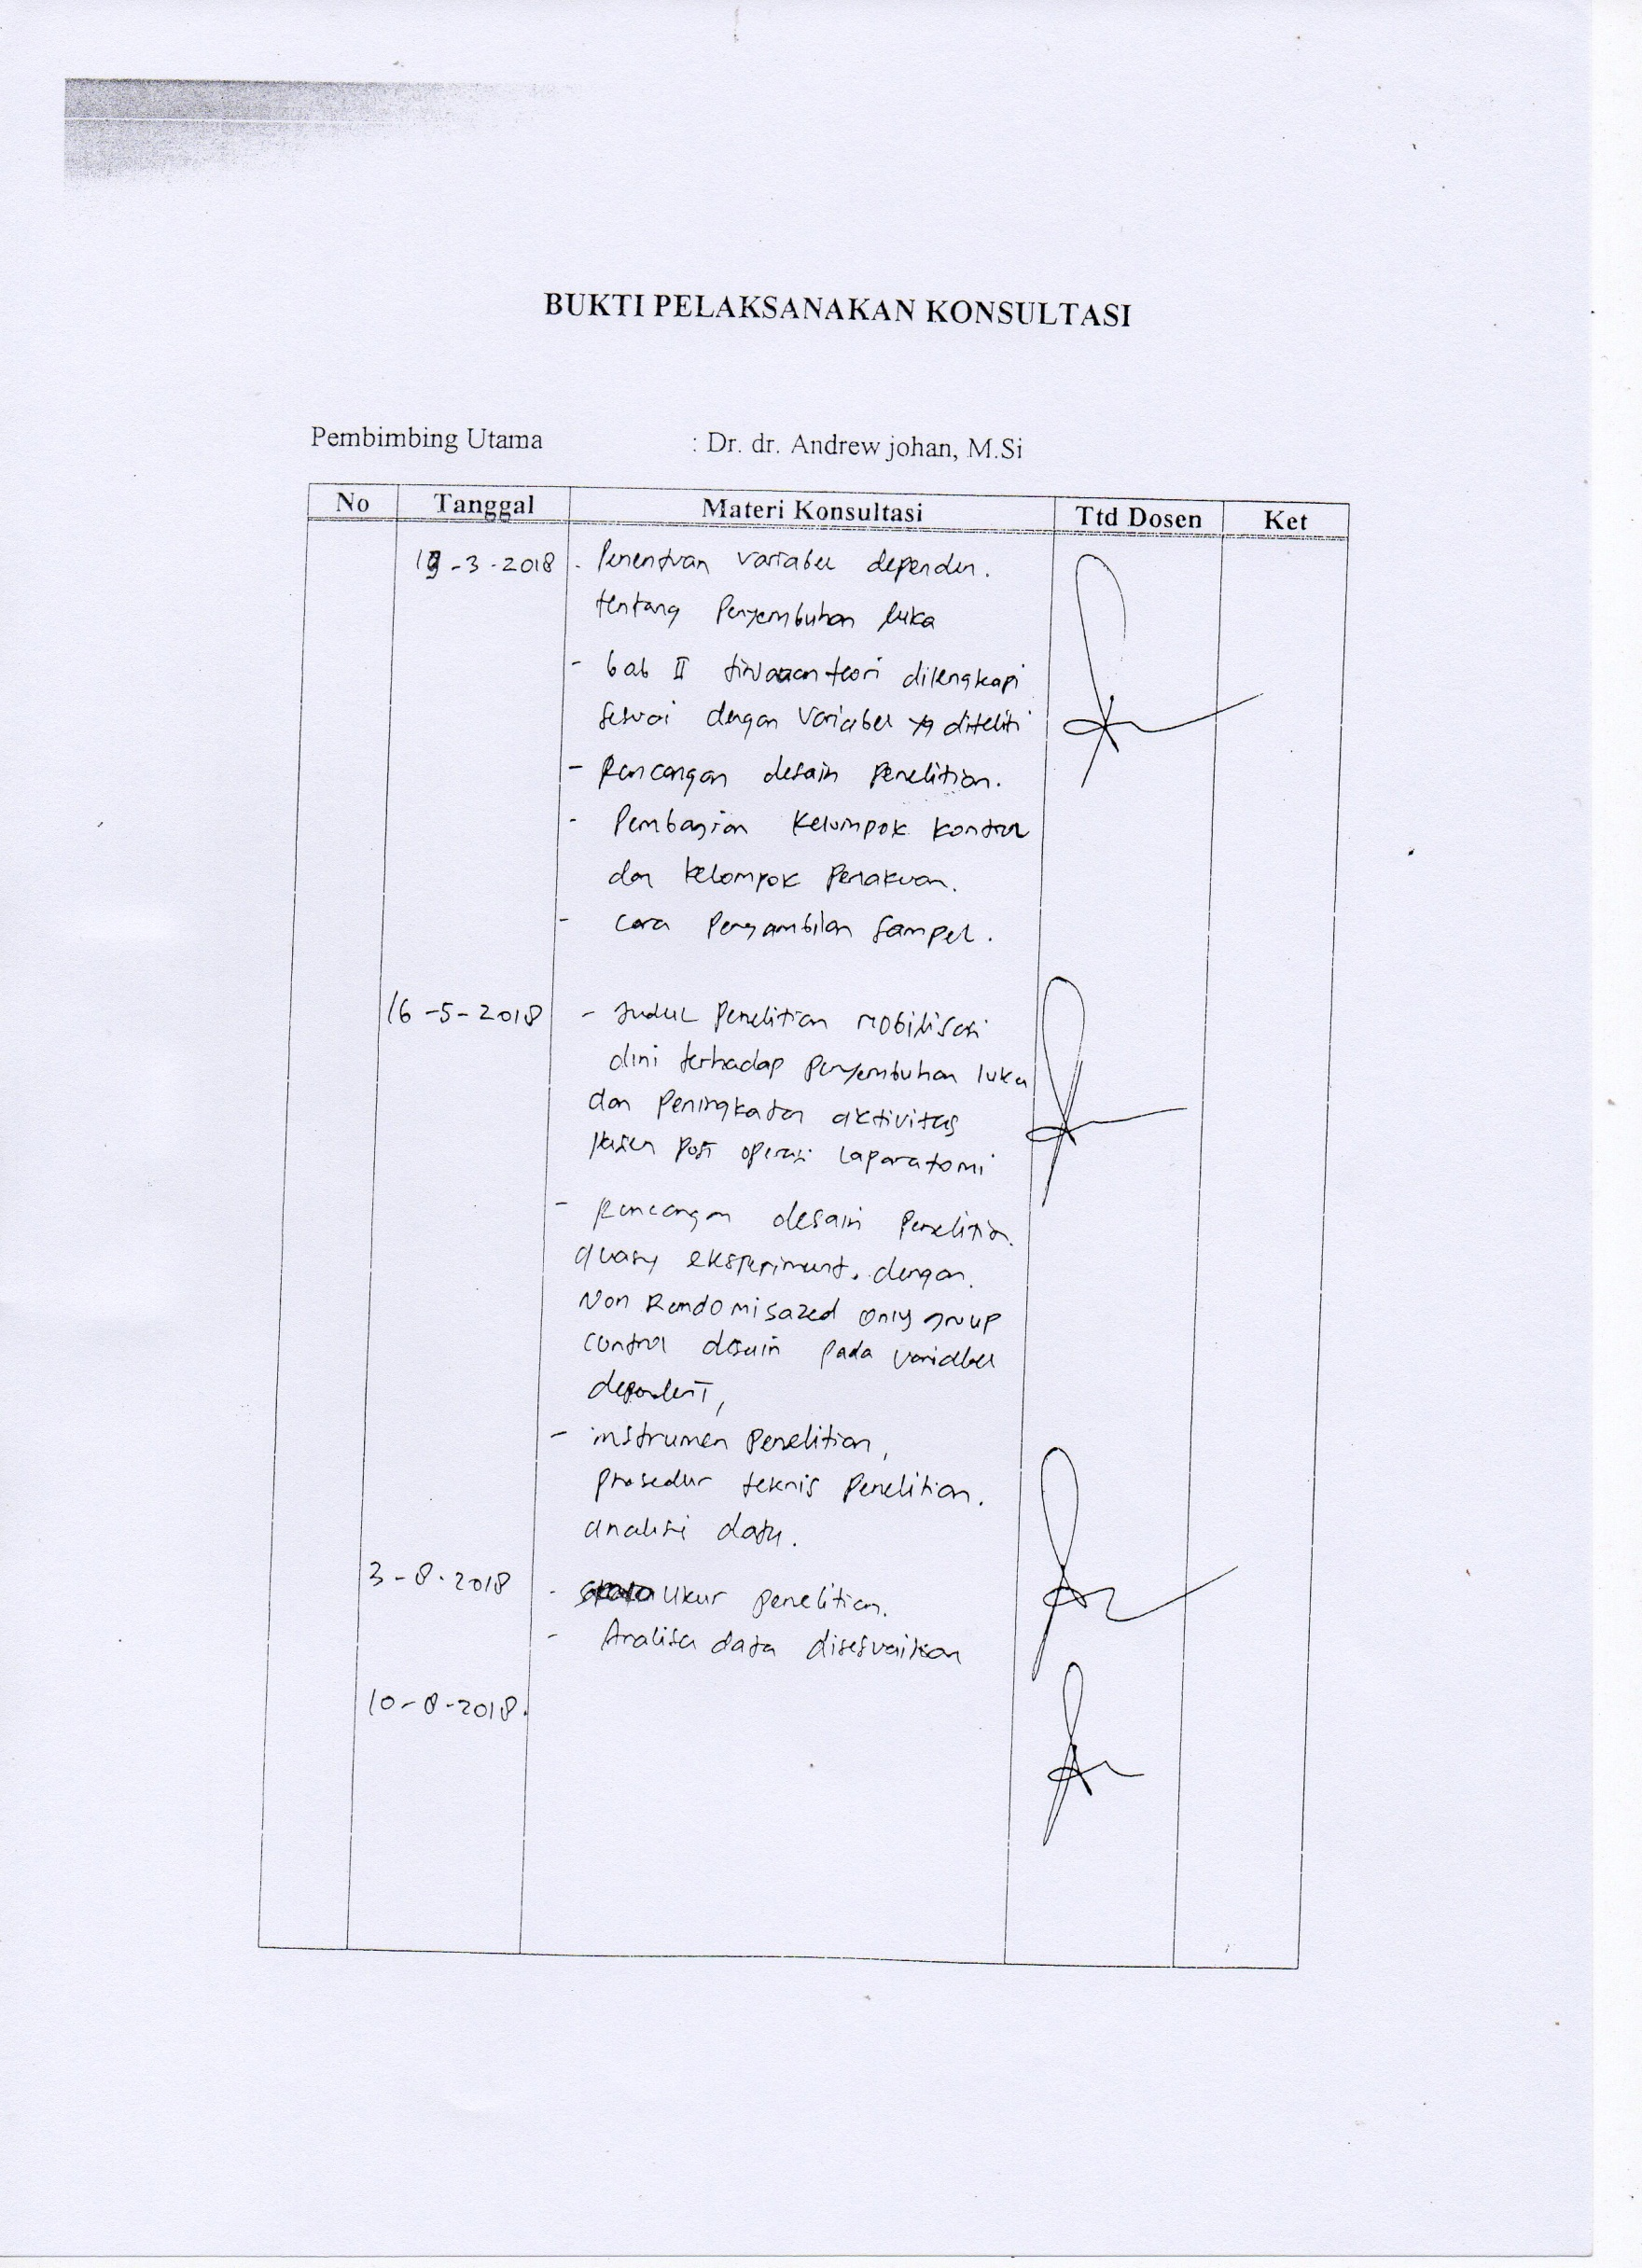 BUKTI PELAKSANAKAN KONSULTASI
Pembimbing Utama : Dr. dr. Andrew johan, M.Si
No Tanggal Materi Konsultasi Ttd Dosen Ket
19-3-2018 - Penentuan variabel dependen.
tentang Penyembuhan luka
- bab II teori dilengkapi
sesuai dengan variabel yg diteliti
- Rancangan desain penelitian.
- Pembagian kelompok kontrol
dan kelompok Perlakuan.
- Cara Pengambilan Sampel.
16-5-2018 - Judul Penelitian mobilisasi
dini terhadap penyembuhan luka
dan peningkatan aktivitas
pasien post operasi laparatomi
- Rancangan desain Penelitian.
quasy eksperiment. dengan.
Non Randomisazed only group
control desain pada variabel
dependent,
- instrumen Penelitian,
prosedur teknis Penelitian.
analisi data.
3-8-2018 - Ukur penelitian.
- Analisa data disesuaikan
10-8-2018.